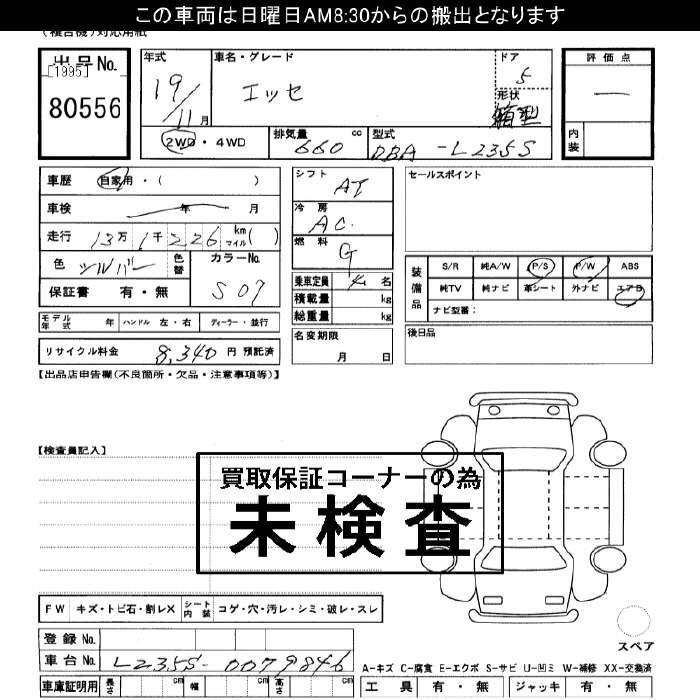 この車両は日曜日AM8:30からの搬出となります
(複合機)対応用紙
出品No.
[1995]
80556
年式 車名・グレード ドア
19/11月 エッセ 5
形状
箱型
2WD・4WD 排気量 660 cc 型式 DBA-L235S
評価点
―
内装
車歴 自家用・( )
車検 年 月
走行 13万1千226 km マイル( )
色 シルバー 色替 カラーNo. S07
保証書 有・無
シフト AT
冷房 AC.
燃料 G
乗車定員 4名
積載量 kg
総重量 kg
名変期限
月 日
セールスポイント
装備品 S/R 純A/W P/S P/W ABS
純TV 純ナビ 革シート 外ナビ エアB
ナビ型番:
後日品
モデル年式 年 ハンドル 左・右 ディーラー・並行
リサイクル料金 8,340円 預託済
【出品店申告欄(不良箇所・欠品・注意事項等)】
【検査員記入】
買取保証コーナーの為
未検査
FW キズ・トビ石・割レX シート内装 コゲ・穴・汚レ・シミ・破レ・スレ
スペア
登録No.
車台No. L235S-0079846
A-キズ C-腐食 E-エクボ S-サビ U-凹ミ W-補修 XX-交換済
車庫証明用 長さ cm 幅 cm 高さ cm
工具 有・無 ジャッキ 有・無